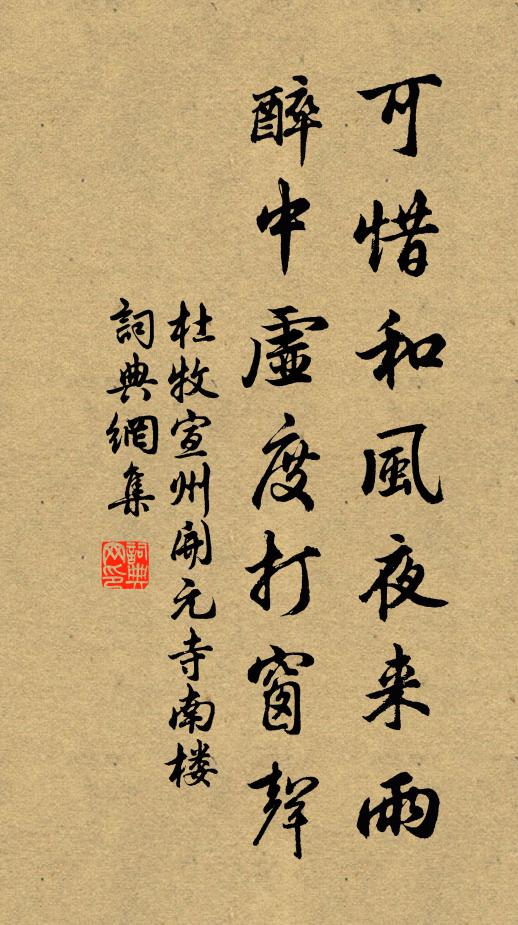 可惜和風夜来雨
醉中虛度打窗聲
杜牧宣州開元寺南楼
詞典網集
詞典网印